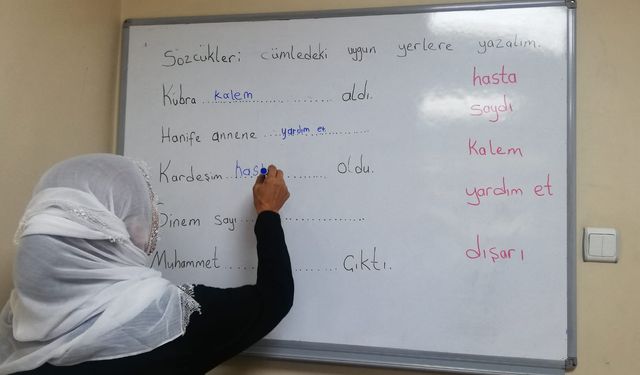 Sözcükleri cümledeki uygun yerlere yazalım.
Kübra kalem aldı.
Hanife annene yardım et
Kardeşim has oldu.
Sinem sayı
Muhammet çıktı.
hasta
saydı
kalem
yardım et
dışarı